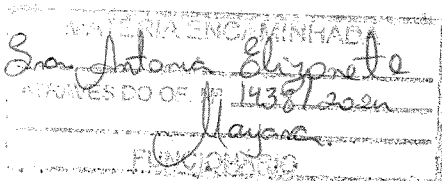 MATÉRIA ENCAMINHADA
Sra. Antonia Elizonete
ATRAVÉS DO OF. Nº 1438/2024
Mayana
FUNCIONÁRIO